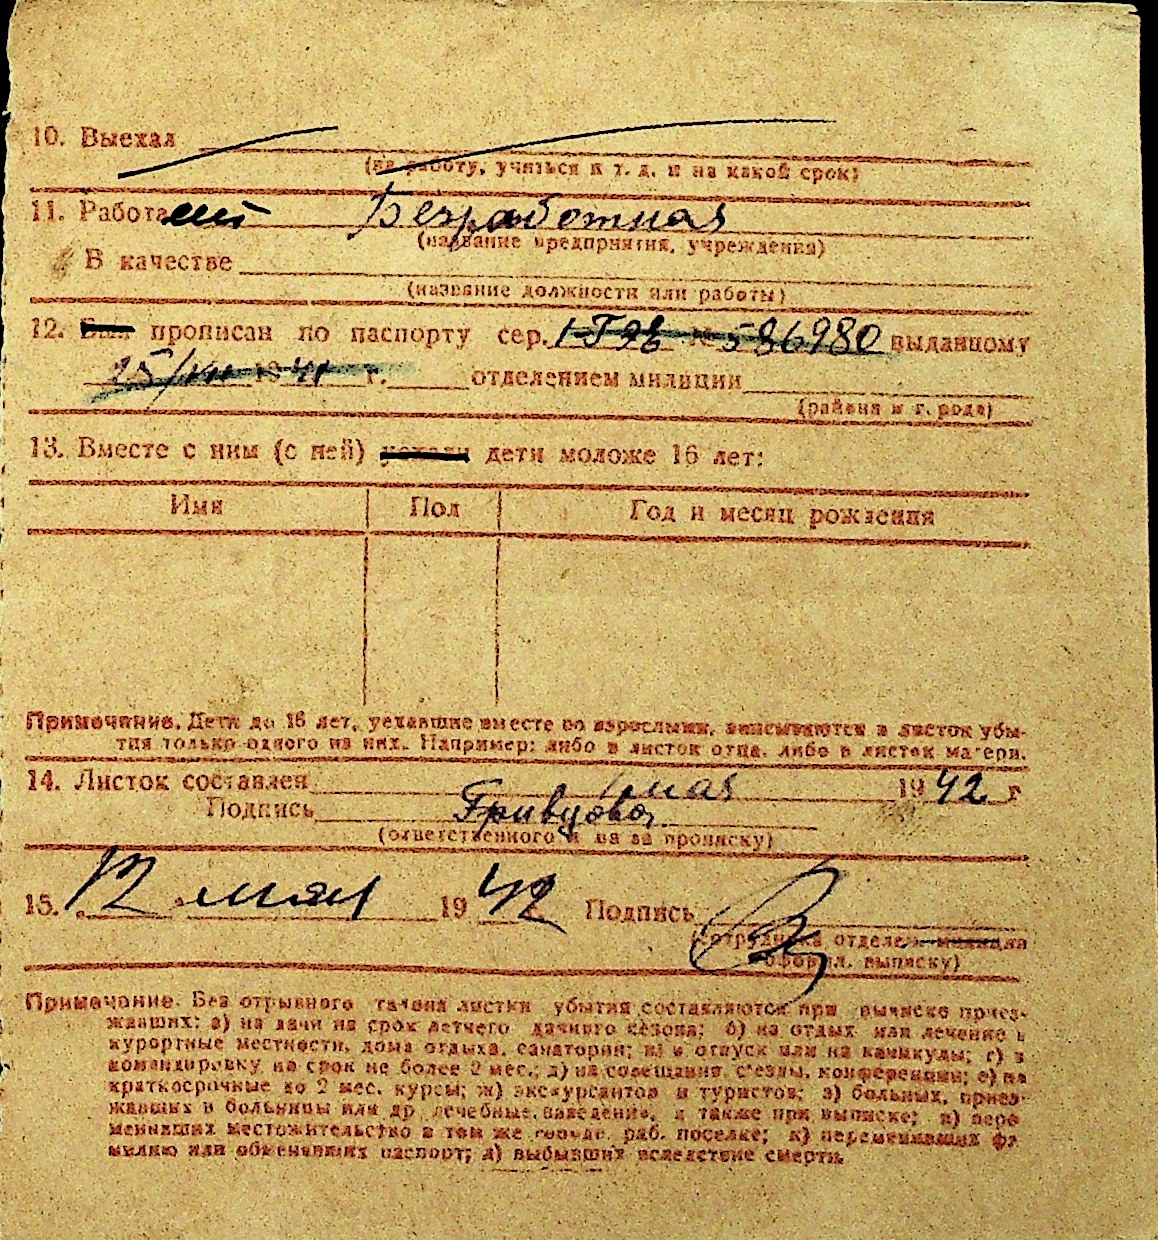 10. Выехал
(на работу, учиться и т. д. и на какой срок)
11. Работает Безработная
(название предприятия, учреждения)
В качестве
(название должности или работы)
12. прописан по паспорту сер. № 586980 выданному
15/VII 1941 г. отделением милиции
(района и города)
13. Вместе с ним (с ней) уехали дети моложе 16 лет:
Имя Пол Год и месяц рождения
Примечание. Дети до 16 лет, уехавшие вместе со взрослыми, вписываются в листок убы-
тия только одного из них. Например: либо в листок отца, либо в листок матери.
14. Листок составлен мая 1942 г
Подпись
(ответственного за прописку)
15. 12 мая 1942 Подпись
(сотрудника отделен. милиции
оформл. выписку)
Примечание. Без отрывного талона листки убытия составляются при выписке приез-
жавших: а) на дачи на срок летнего дачного сезона; б) на отдых или лечение в
курортные местности, дома отдыха, санатории; в) в отпуск или на каникулы; г) в
командировку на срок не более 2 мес.; д) на совещания, съезды, конференции; е) на
краткосрочные до 2 мес. курсы; ж) экскурсантов и туристов; з) больных, приез-
жавших в больницы или др. лечебные заведения, а также при выписке; и) пере
менивших местожительство в том же городе, раб. поселке; к) переменивших фа
милию или обменявших паспорт; л) выбывших вследствие смерти.